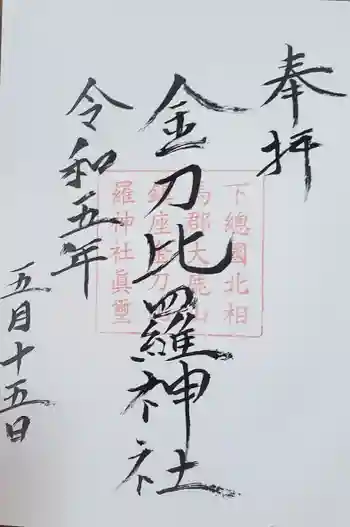 奉拝
下總國北相
馬郡大鹿山
鎮座金刀比
羅神社眞璽
金刀比羅神社
令和五年
五月十五日